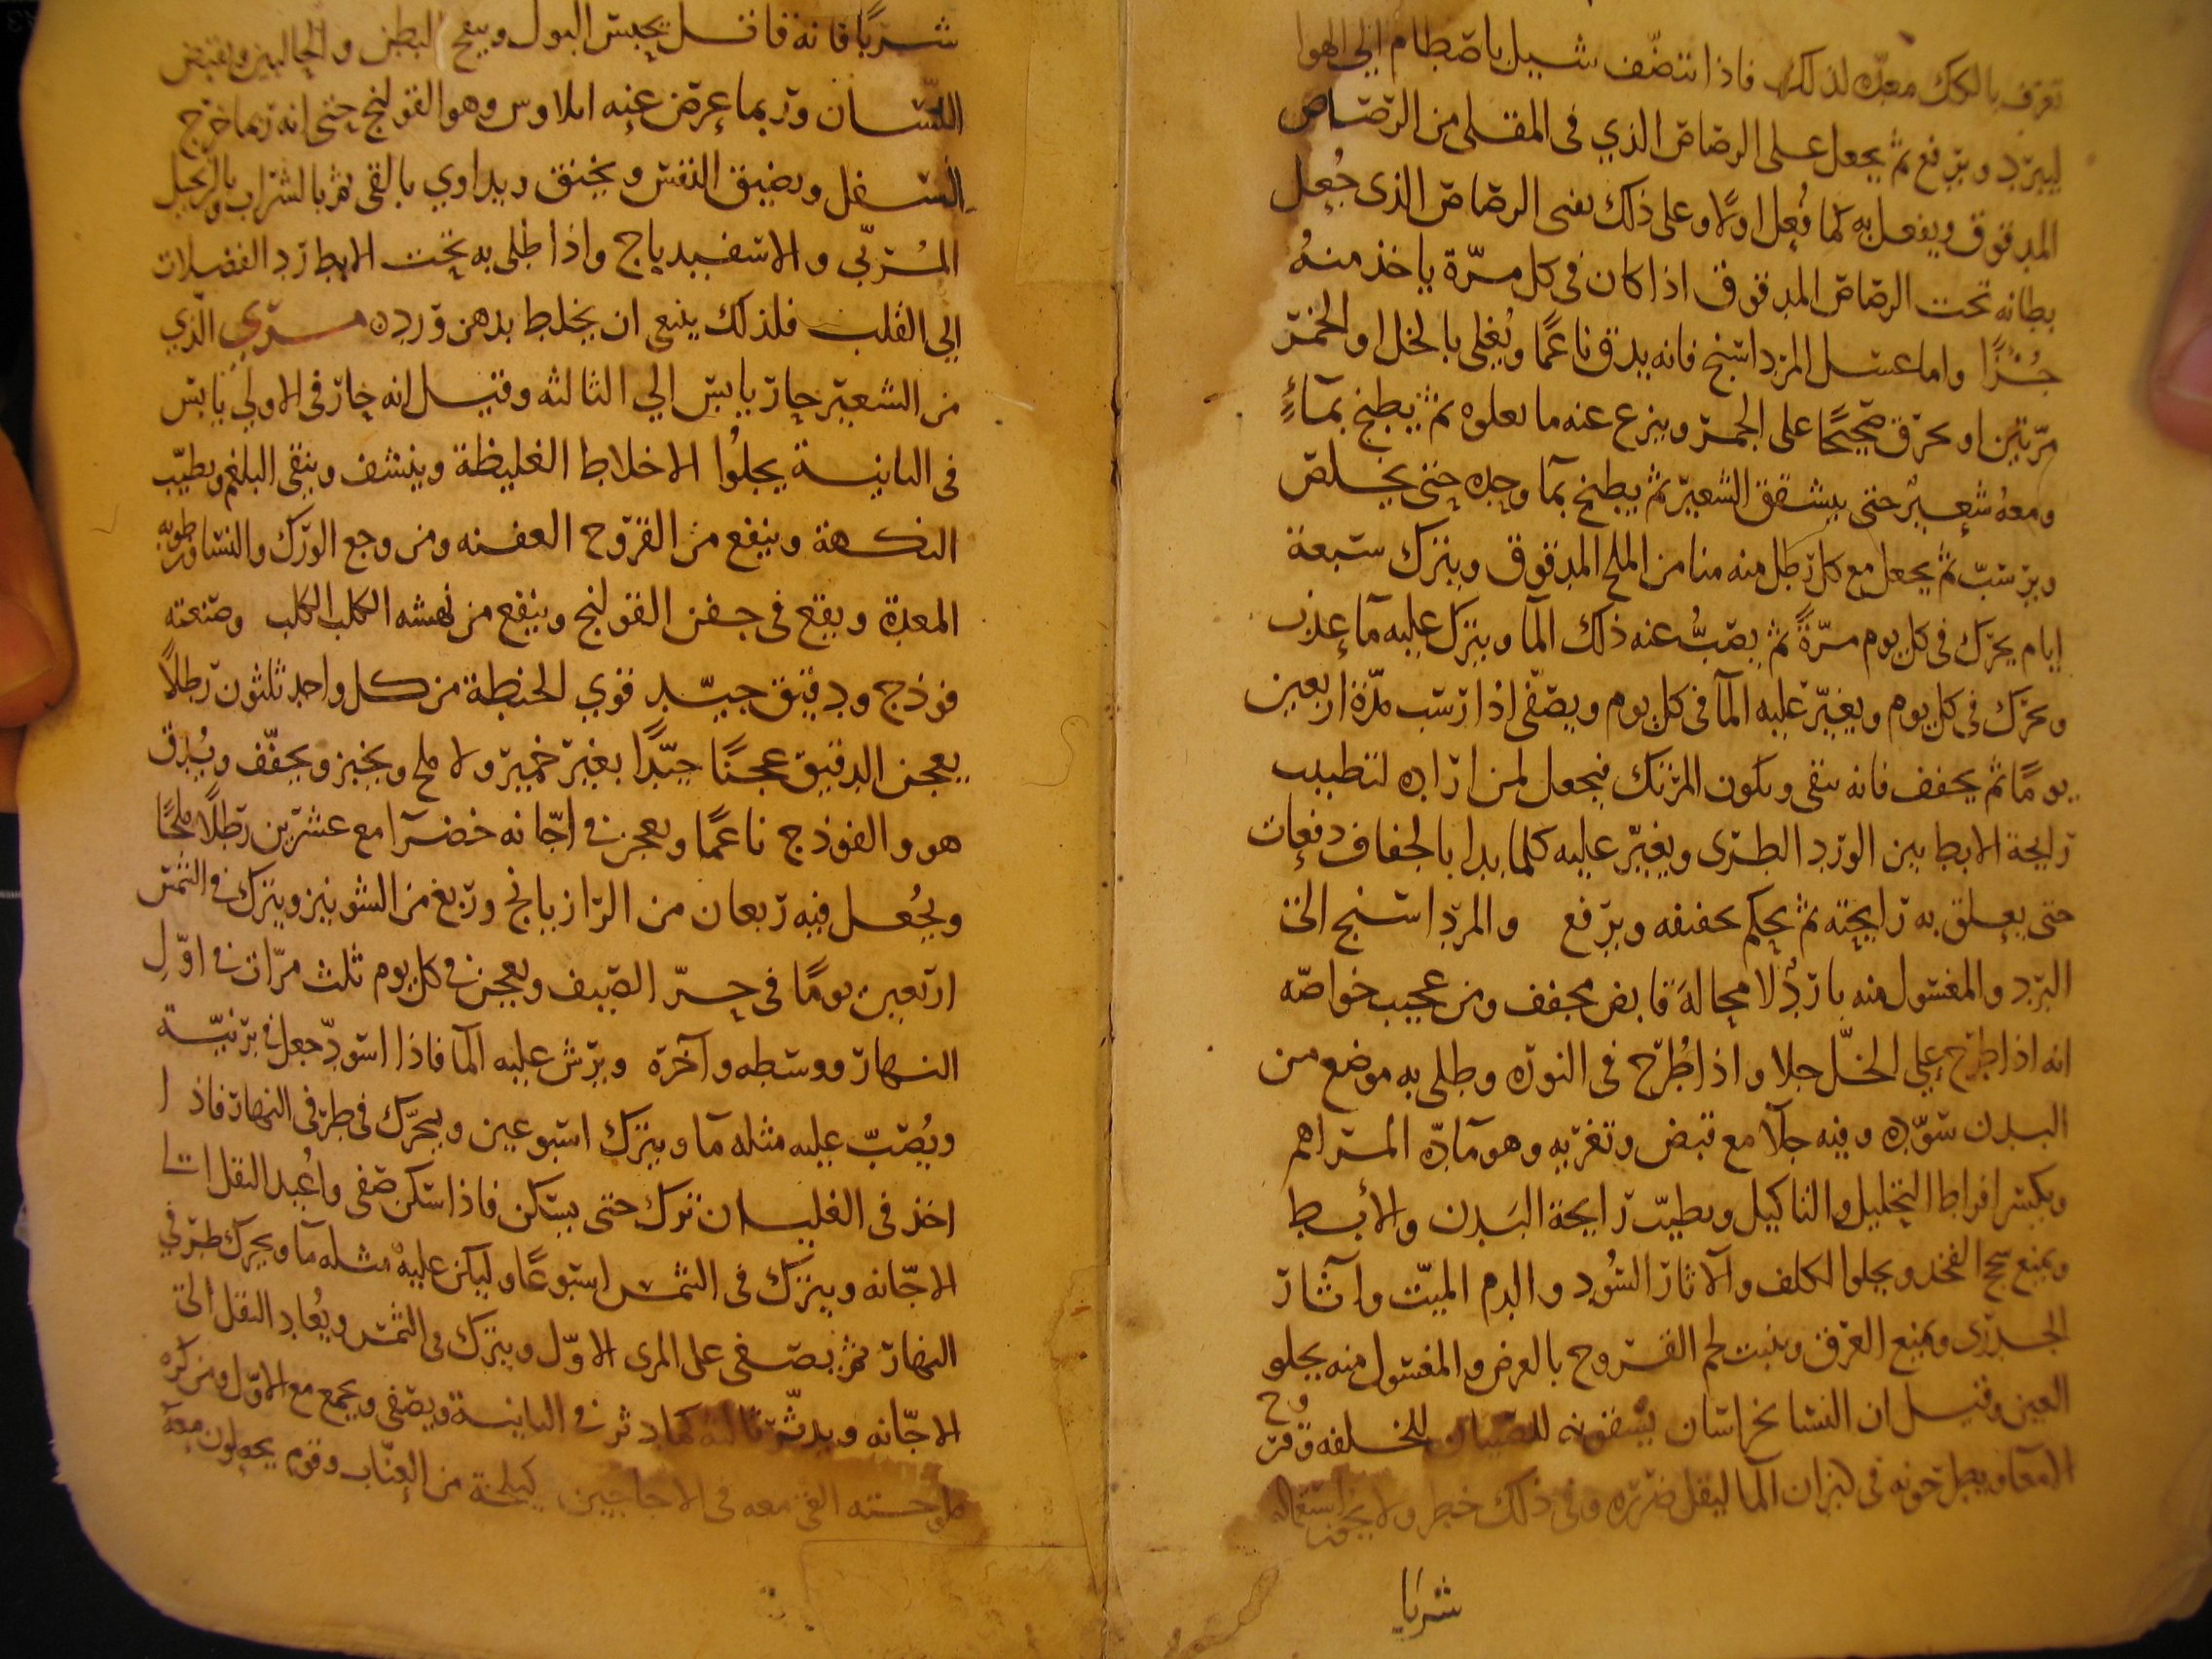 تعرف بالكك معدّه لذلك فاذا تنضّف شيل باصطام الي الهوا
ليبرد ويرفع ثم يجعل على الرصاص الذي في المقلى من الرصاص
المدقوق ويفعل به كما فُعل اولا وعلى ذلك يفنى الرصاص الذى جُعل
بطانه تحت الرصاص المدقوق اذا كان في كل مرّة ياخذ منهُ
جُزًا واما غسل المرداسنج فانه يدق ناعمًا ويُغلى بالخل او الخمر
مرّتين او يحرق صحيحًا على الجمر وينزع عنه ما يعلوه ثم يطبخ بمآءٍ
ومعهُ شعير حتى يتشقق الشعير ثم يطبخ بمآ وحده حتى يخلص
ويرسب ثم يجعل مع كل رطل منه منا من الملح المدقوق ويترك سبعة
ايام يحرّك في كل يوم مرّةً ثم يصبُّ عنه ذلك المآ ويترك عليه مآ عذب
ويحرّك في كل يوم ويغيّر عليه المآ في كل يوم ويصفّى اذا رسب مدّة اربعين
يومًا ثم يجفف فانه ينقى ويكون المرتك فيجعل لمن اراده لتطييب
رايحة الابط بين الورد الطرى ويغيّر عليه كلما بدا بالجفاف دفعات
حتى يعلق به رايحته ثم يحكم تجفيفه ويرفع والمرداسنج الى
البرد والمغسول منه باردٌ لا محالةَ قابض مجفف ومن عجيب خواصّه
انه اذا طرح علي الخلّ حلا واذا طُرح في النوره وطلى به موضع من
البدن سوّده وفيه جلآ مع قبض وتغريه وهو مآدّه المراهم
ويكسر افراط التحليل والتاكيل ويطيّب رايحة البَدن والأبط
ويمنع سحج الفخد ويجلوا الكلف والآثار السُود والدم الميّت وآثار
الجدرى ويمنع العرق وينبت لحم القروح بالعرض والمغسول منه يجلو
العين وقيل ان النسا بخراسان يسقونه للصبيان للخلفه وقروح
الامعا ويطرحونه في كيزان المآ ليقل ضرره وفي ذلك خطر ولا يجوز استعماله
شربًا
شربًا فانه قاتل يحبس البول وينفخ البطن والحالبين ويقبض
اللسان وربما عرض عنه ايلاوس وهو القولنج حتى انه ربما خرج
السفل ويضيق النفس ويخنق ويداوي بالقى ثم بالشراب وبالزنجبيل
المُربّي والاسفيدباج واذا طلى به تحت الابط ردّ الفضلات
الي القلب فلذلك ينبغى ان يخلط بدهن ورده مرّي الذي
من الشعير حار يابس الي الثالثه وقيل انه حار في الاولي يابس
في الثانية يجلُوا الاخلاط الغليظة وينشف وينقى البلغم ويطيّب
النكهة وينفع من القروح العفنه ومن وجع الورك والنسا ورطوبة
المعدة ويقع في حقن القولنج وينفع من نهشه الكلب الكلب وصنعته
فوذج ودقيق جيّد قوي الحنطة من كل واحد ثلثون رطلاً
يعجن الدقيق عجنًا جيّدًا بغير خمير ولا ملح ويخبز ويجفّف ويُدق
هو والفوذج ناعمًا ويعجن في اجّانه خضرآ مع عشرين رطلًا ملحًا
ويُجعل فيه ربعان من الرازيانج وربع من الشونيز ويترك في الشمس
اربعين يومًا في حرّ الصيف ويعجن في كل يوم ثلث مرّات في اوّل
النهار ووسطه وآخره ويرش عليه المآ فاذا اسودّ جعل في برنيّة
ويُصبّ عليه مثله مآ ويترك اسبوعين ويحرّك في طرفي النهار فاذا
اخذ في الغليان ترك حتى يسكن فاذا سكن صفى واُعيد الثقل الى
الاجّانه ويترك في الشمس اسبوعًا وليكن عليهُ مثله مآ ويحرك طرفي
النهار ثم يصفى على المرى الاوّل ويترك في الشمس ويُعاد الثقل الى
الاجّانه ويدثّر ثالثه كما دثر في الثانية ويصفى ويجمع مع الاوّل ومن كره
ملوحته القى معه في الاجاجين كيلجة من العنّاب وقوم يجعلون معه